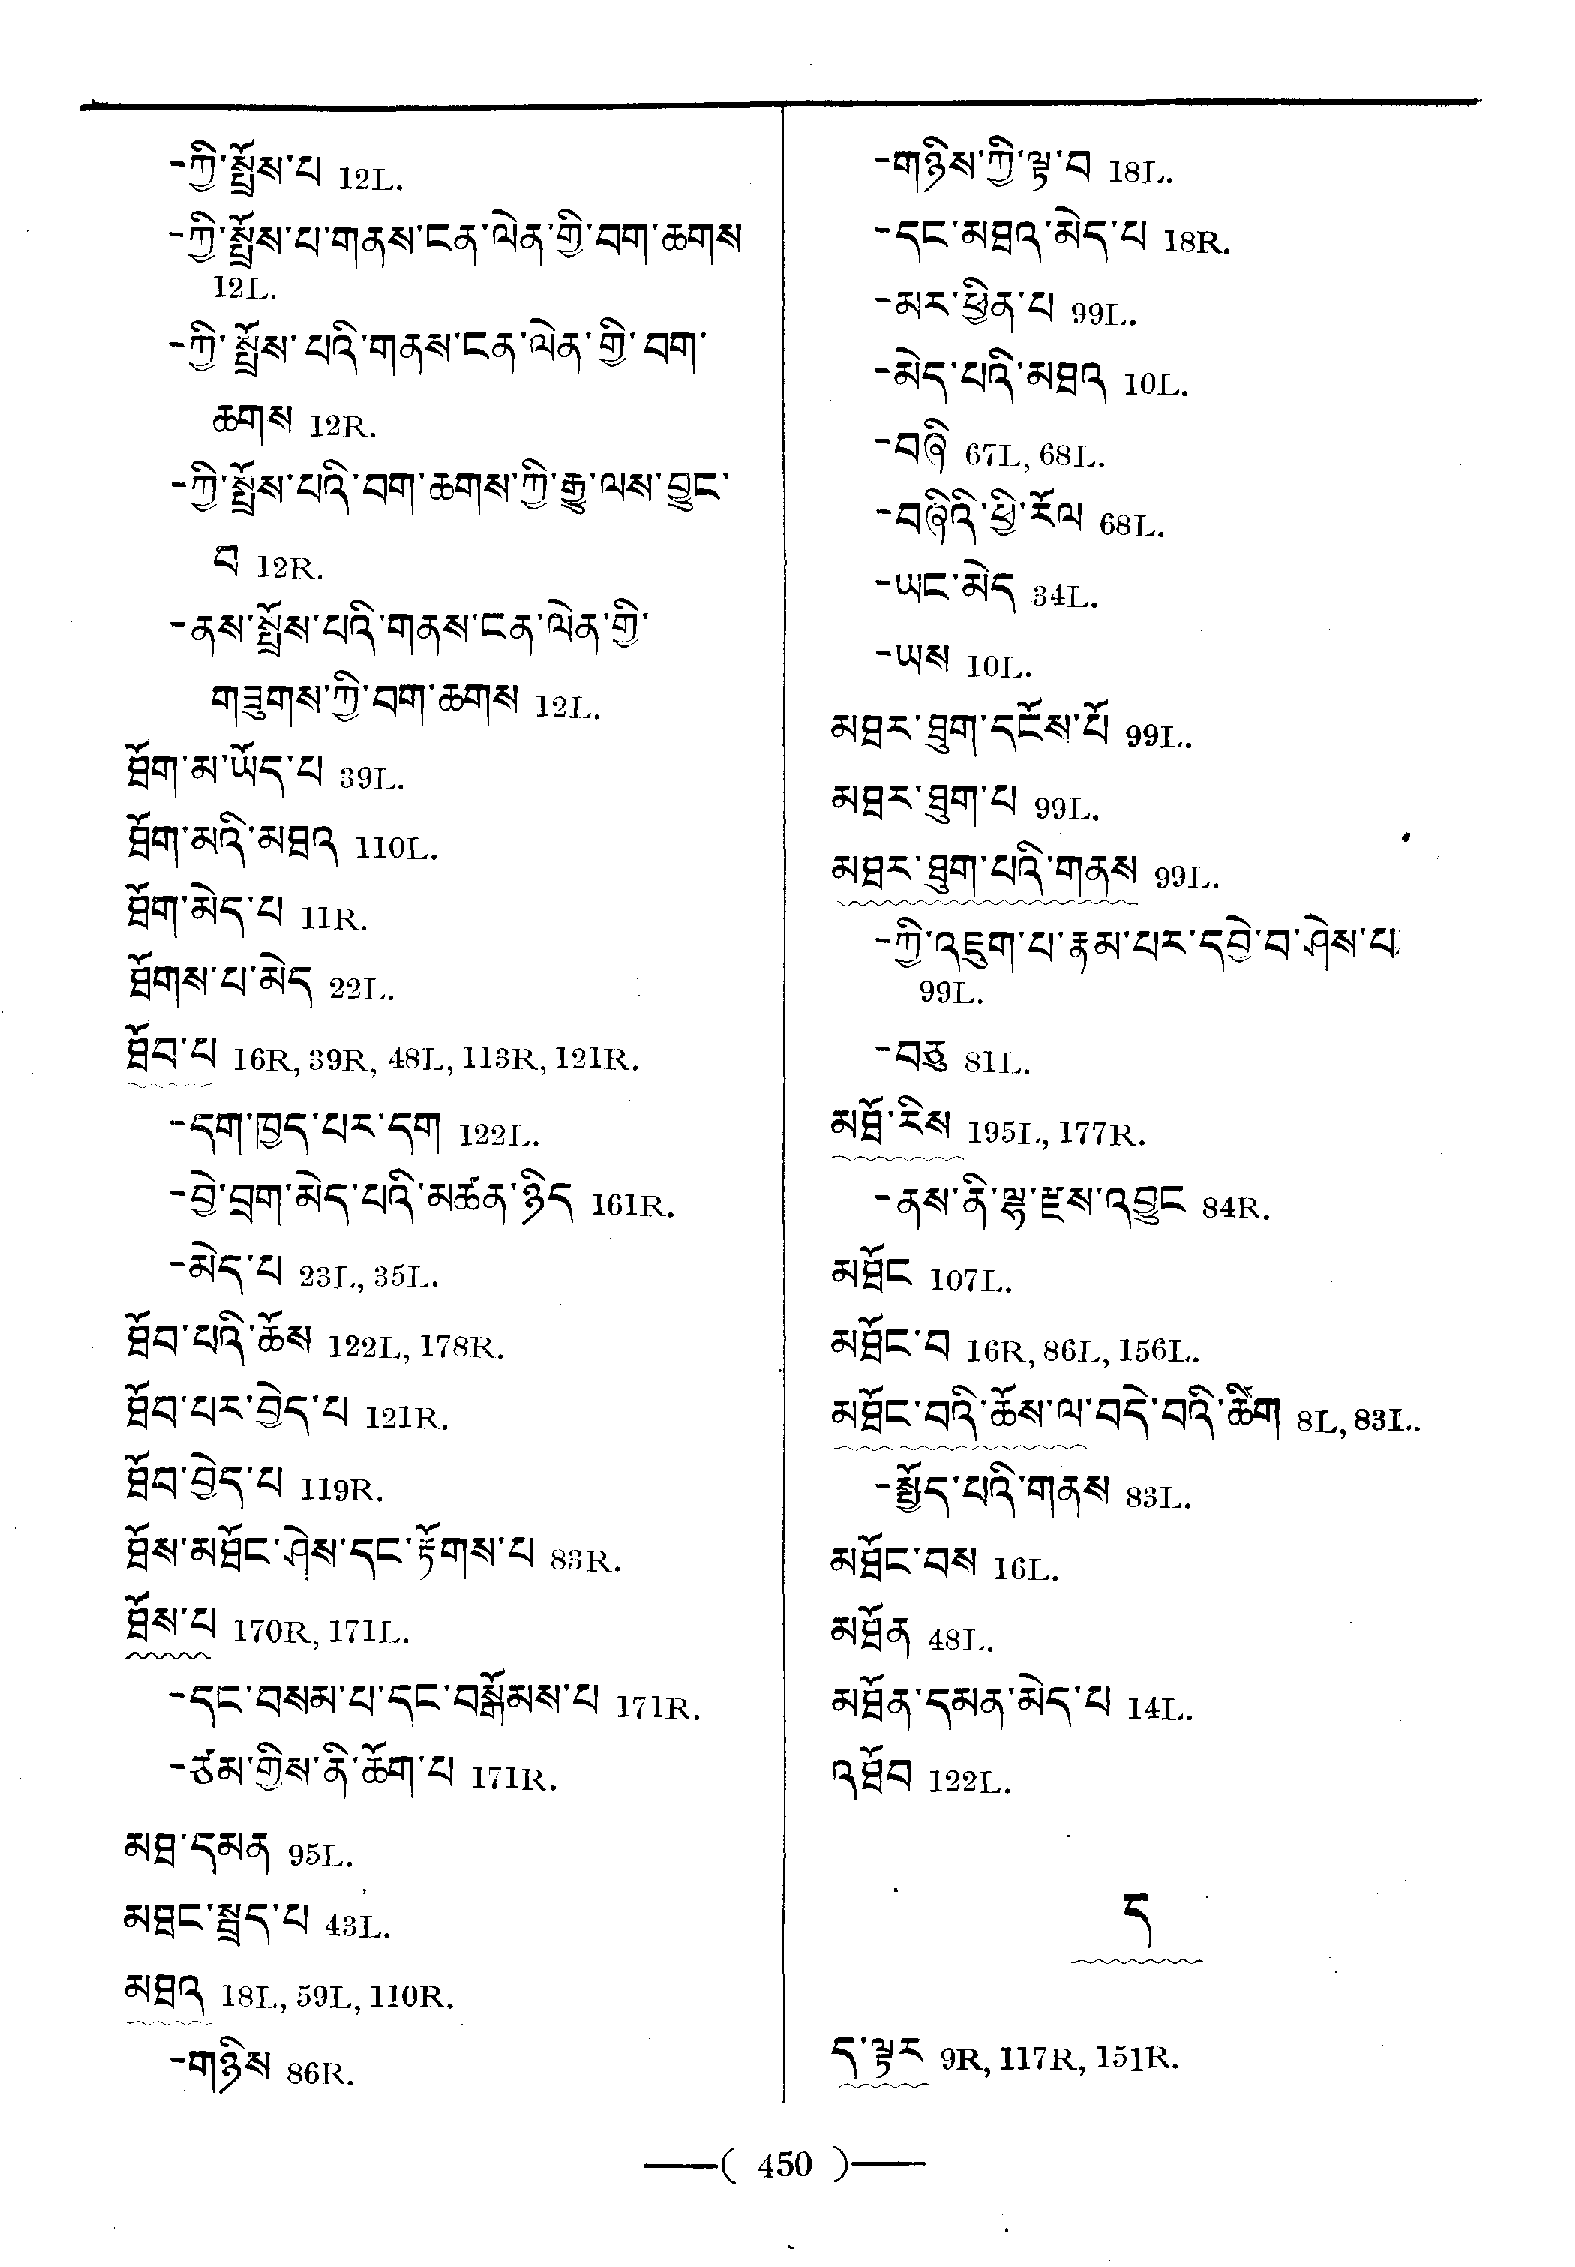 -ཀྱི་སྤྲོས་པ 12L.
-ཀྱི་སྤྲོས་པ་གནས་ངན་ལེན་གྱི་བག་ཆགས
12L.
-ཀྱི་སྤྲོས་པའི་གནས་ངན་ལེན་གྱི་བག་
ཆགས 12R.
-ཀྱི་སྤྲོས་པའི་བག་ཆགས་ཀྱི་རྒྱུ་ལས་བྱུང་
བ 12R.
-ནས་སྤྲོས་པའི་གནས་ངན་ལེན་གྱི་
གཟུགས་ཀྱི་བག་ཆགས 12L.
ཐོག་མ་ཡོད་པ 39L.
ཐོག་མའི་མཐའ 110L.
ཐོག་མེད་པ 11R.
ཐོགས་པ་མེད 22L.
ཐོབ་པ 16R, 39R, 48L, 113R, 121R.
-དག་ཁྱད་པར་དག 122L.
-བྱེ་བྲག་མེད་པའི་མཚན་ཉིད 161R.
-མེད་པ 23L, 35L.
ཐོབ་པའི་ཆོས 122L, 178R.
ཐོབ་པར་བྱེད་པ 121R.
ཐོབ་བྱེད་པ 119R.
ཐོས་མཐོང་ཤེས་དང་རྟོགས་པ 83R.
ཐོས་པ 170R, 171L.
-དང་བསམ་པ་དང་བསྒོམས་པ 171R.
-ཙམ་གྱིས་ནི་ཆོག་པ 171R.
མཐ་དམན 95L.
མཐང་སྦྲད་པ 43L.
མཐའ 18L, 59L, 110R.
-གཉིས 86R.
-གཉིས་ཀྱི་ལྟ་བ 18L.
-དང་མཐའ་མེད་པ 18R.
-མར་ཕྱིན་པ 99L.
-མེད་པའི་མཐའ 10L.
-བཞི 67L, 68L.
-བཞིའི་ཕྱི་རོལ 68L.
-ཡང་མེད 34L.
-ཡས 10L.
མཐར་ཐུག་དངོས་པོ 99L.
མཐར་ཐུག་པ 99L.
མཐར་ཐུག་པའི་གནས 99L.
-ཀྱི་འཇུག་པ་རྣམ་པར་དབྱེ་བ་ཤེས་པ
99L.
-བཅུ 81L.
མཐོ་རིས 195L, 177R.
-ནས་ནི་ལྷ་རྫས་འབྱུང 84R.
མཐོང 107L.
མཐོང་བ 16R, 86L, 156L.
མཐོང་བའི་ཆོས་ལ་བདེ་བའི་ཚིག 8L, 83L.
-སྤྱོད་པའི་གནས 83L.
མཐོང་བས 16L.
མཐོན 48L.
མཐོན་དམན་མེད་པ 14L.
འཐོབ 122L.
ད
ད་ལྟར 9R, 117R, 151R.
( 450 )